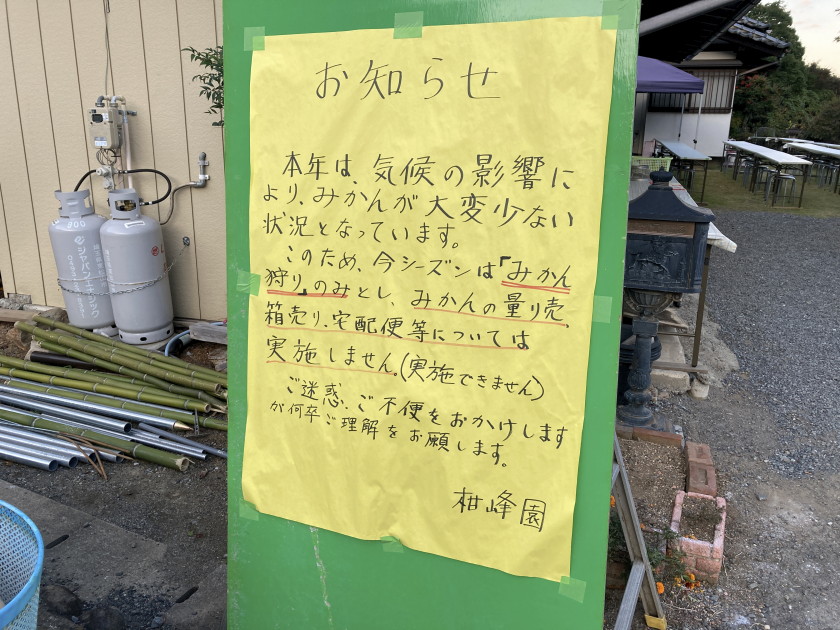 お知らせ
本年は、気候の影響に
より、みかんが大変少ない
状況となっています。
このため、今シーズンは「みかん
狩り」のみとし、みかんの量り売、
箱売り、宅配便等については
実施しません。(実施できません)
ご迷惑、ご不便をおかけします
が何卒ご理解をお願します。
柑峰園